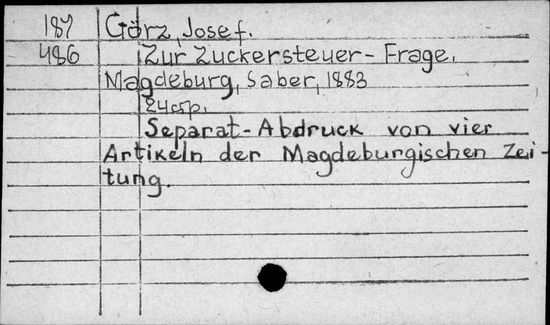 187 Görz, Josef.
486 Zur Zuckersteuer-Frage.
Magdeburg, Saber, 1883
24 csp.
Separat-Abdruck von vier
Artikeln der Magdeburgischen Zei-
tung.